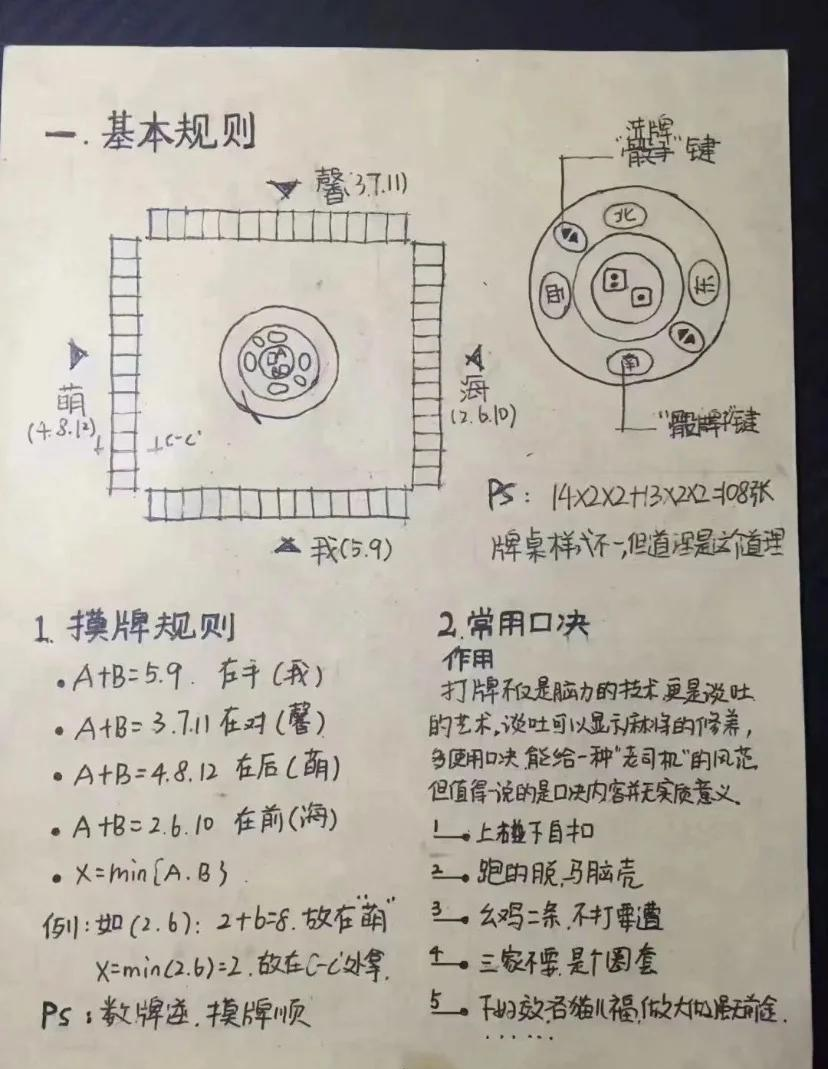 一. 基本规则
馨(3.7.11)
萌
(4.8.12)
C-C'
海
(2.6.10)
我(5.9)
洗牌
"骰子"键
北
西
东
南
键
PS: 14×2×2+13×2×2=108张
牌桌样式不一,但道理是这个道理
1. 摸牌规则
• A+B=5.9. 在手(我)
• A+B=3.7.11 在对(馨)
• A+B=4.8.12 在后(萌)
• A+B=2.6.10 在前(海)
• X=min{A.B}
例:如(2.6): 2+6=8. 放在"萌"
X=min(2.6)=2. 放在C-C'处拿.
PS: 数牌逆.摸牌顺
2. 常用口决
作用
打牌不仅是脑力的技术.更是谈吐
的艺术,谈吐可以显示麻将的修养,
多使用口决,能给一种"老司机"的风范
但值得一说的是口决内容并无实质意义.
1 上碰下自扣
2 跑的脱,马脑壳
3 幺鸡二条,不打要遭
4 三家不要,是个圈套
5 猫儿福,做大 前途.
……